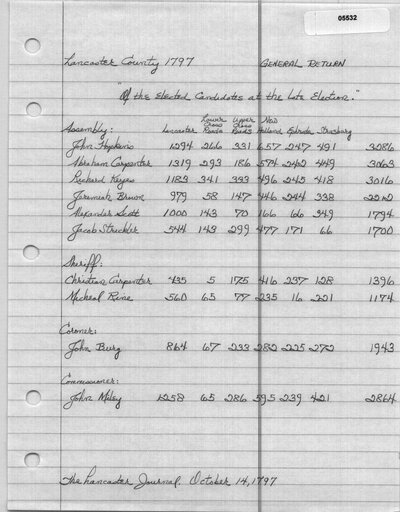 05532
Lancaster County 1797 GENERAL RETURN
"Of the Elected Candidates at the Late Election."
Lower Upper New
Cross Cross
Assembly: Lancaster Roads Roads Holland Ephrata Strasburg
John Hopkins 1294 266 331 657 247 491 3286
Abraham Carpenter 1319 293 186 574 242 449 3063
Richard Keyes 1183 341 333 496 245 418 3016
Jeremiah Brown 979 58 147 446 244 338 2212
Alexander Scott 1000 143 70 166 66 349 1794
Jacob Strickler 544 143 299 477 171 66 1700
Sheriff:
Christian Carpenter 435 5 175 416 237 128 1396
Micheal Rine 560 65 77 235 16 221 1174
Coroner:
John Burg 864 67 233 282 225 272 1943
Commissioner:
John Miley 1258 65 286 595 239 421 2864
The Lancaster Journal, October 14, 1797